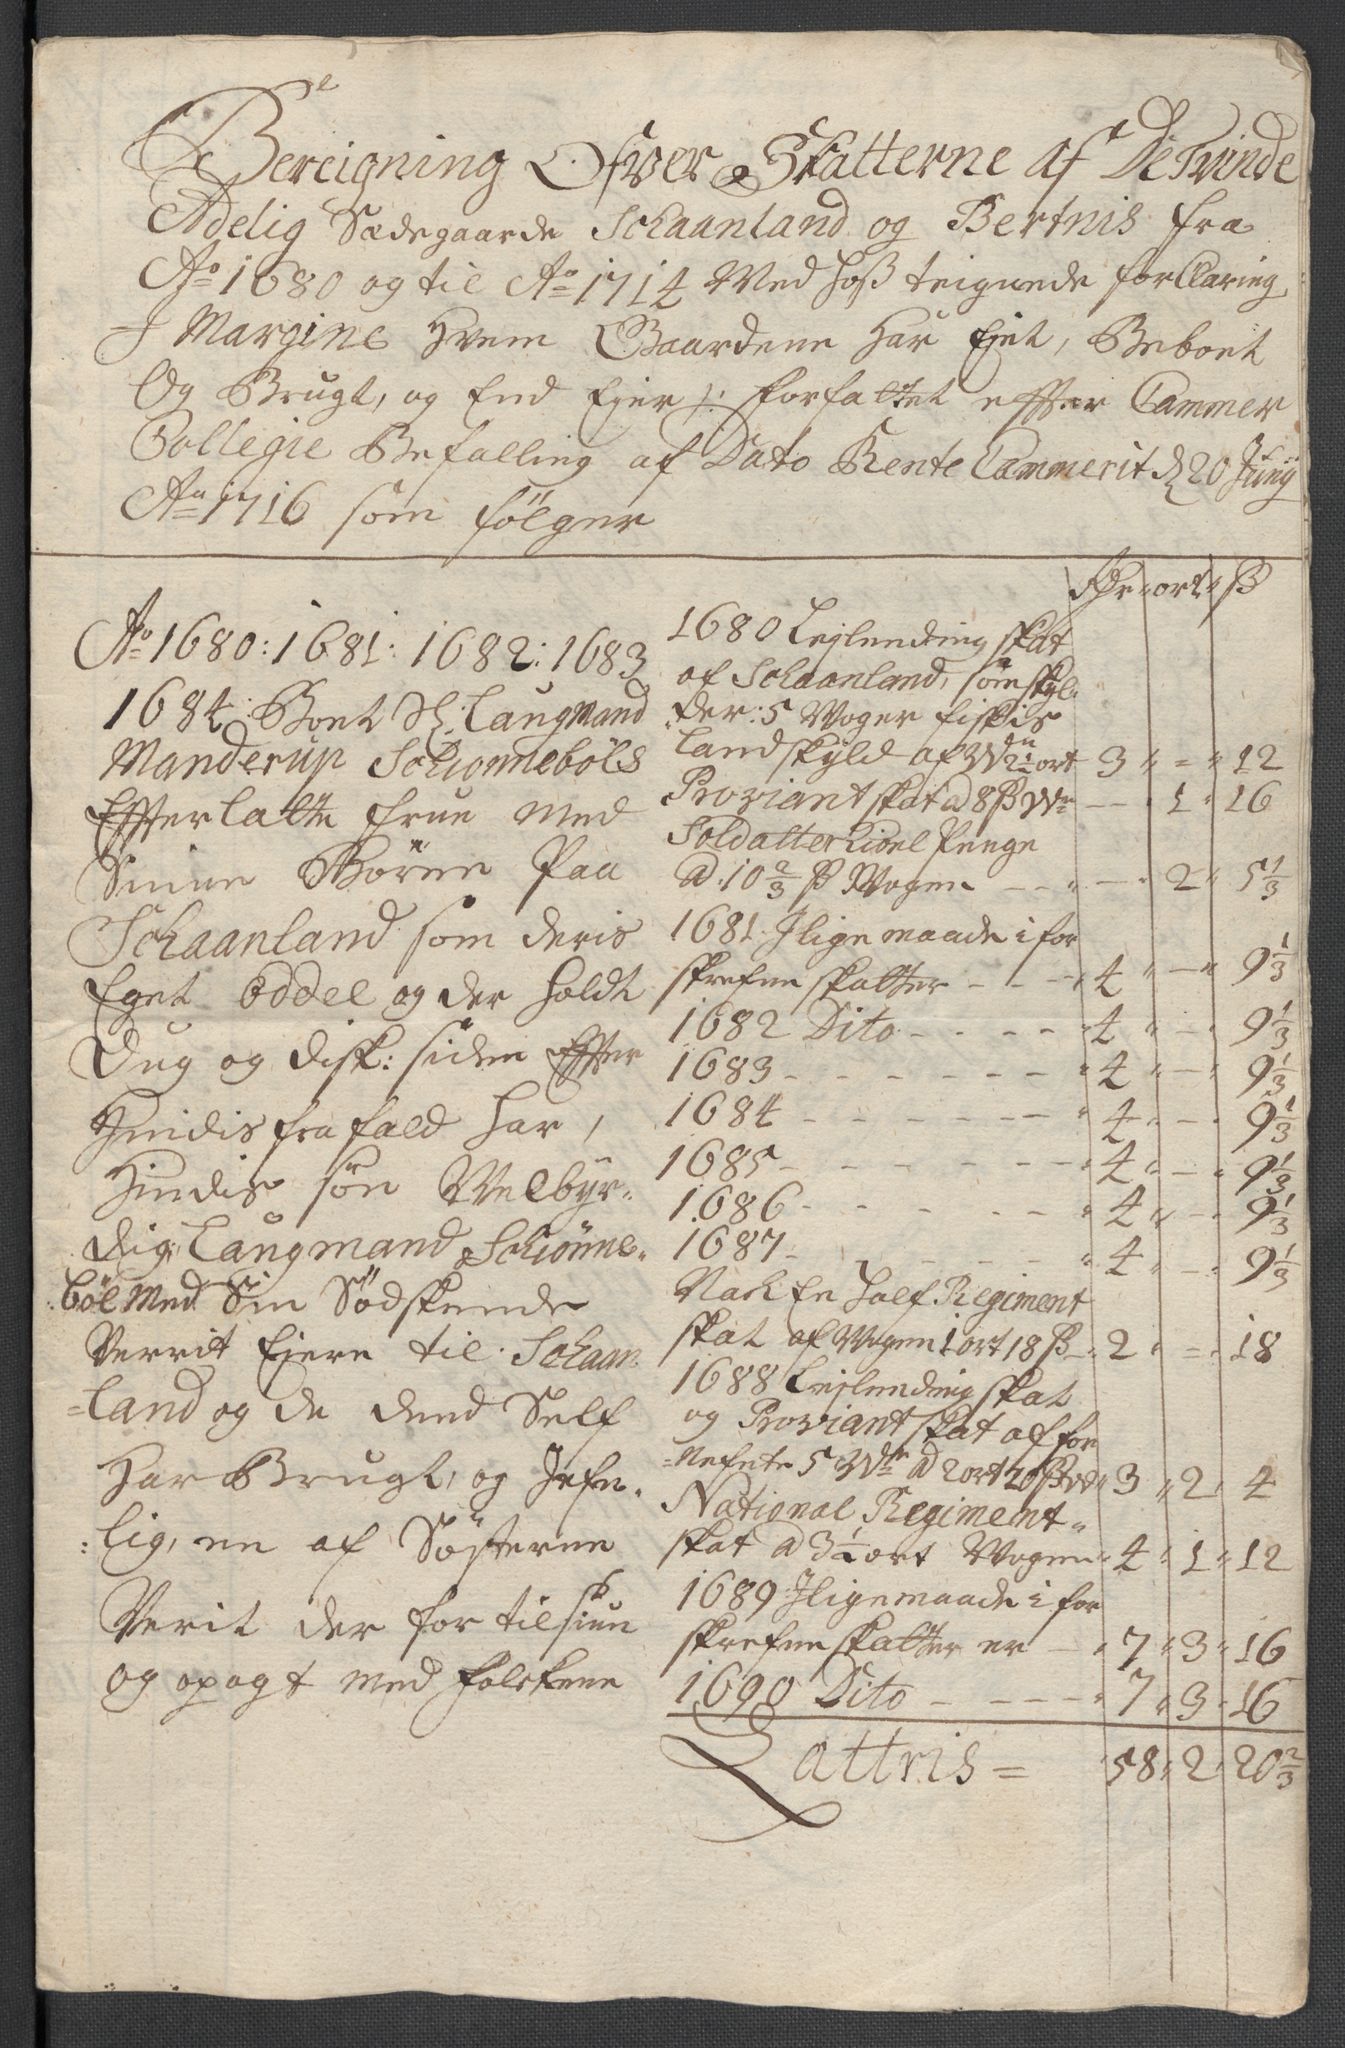 Bereigning Ofver Skatterne af De Tvinde
Adelig Sædegaarde Schaanland og Bertnis fra
Ao 1680 og til Ao 1714 Med hoß teignede forClaring
J Margine Hvem Gaardene Har Ejet, Beboet
Og Brugt, og End Ejer /: forfattet effter Cammer
Collegie Befalling af Dato Rente Cammerit d 20 Junij
Ao 1716 som følger
Rdr ort ß
Ao 1680: 1681: 1682: 1683
1684: Boet Sl: Laugmand
Manderup Schionnebøls
Effterlatte frue med
Sinne Børne Paa
Schaanland som deris
Eget oddel og der holdt
Dug og disk: siden Effter
Hendis fra fald har,
Hendis søn Velbyr-
dig Laugmand Schiønne-
bøl Med Sin Sødskende
Verrit Ejere til Schaan
-land og de dend Self
Har Brugt, og Jefn-
lig, en af Søsterne
Verit der for tilsiun
og opagt med folckene
1680 Leylending skat
af Schaanland, som skyl-
der: 5 Woger fiskis
Landskyld af W 2½ ort 3 " - " 12
Proviant skat ad 8 ß W - - 1 " 16
Soldatter Kioel Penge
ad 10⅔ ß Wogen - - - 2 " 5⅓
1681 Jlige maade i for
skrefne skatter - - - 4 " - " 9⅓
1682 Dito - - - - 4 " - " 9⅓
1683 - - - - - - - 4 " - " 9⅓
1684 - - - - - - - 4 " - " 9⅓
1685 - - - - - - - 4 " - " 9⅓
1686 - - - - - - - 4 " - " 9⅓
1687 - - - - - - 4 " - " 9⅓
Nach En half Regiment
skat af Wogen 1 ort 18 ß - 2 " - " 18
1688 Leylending skat
og Proviant skat af for
-nefnte 5 Wr ad 2 ort 20 ß W 3 " 2 " 4
National Regiment-
skat ad 3½ ort Wogen 4 " 1 " 12
1689 Jlige maade i for
skrefne skatter er - 7 " 3 " 16
1690 Dito - - - - 7 " 3 " 16
Lattris = 58 " 2 " 20⅔